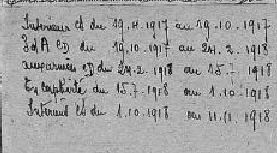 Intérieur CD du 29.4.1917 au 19.10.1917
CD du 19.10.1917 au 24.2.1918
aux armées CD du 24.2.1918 au 15.7.1918
En captivité du 15.7.1918 au 1.10.1918
Intérieur CD du 1.10.1918 au 11.11.1918